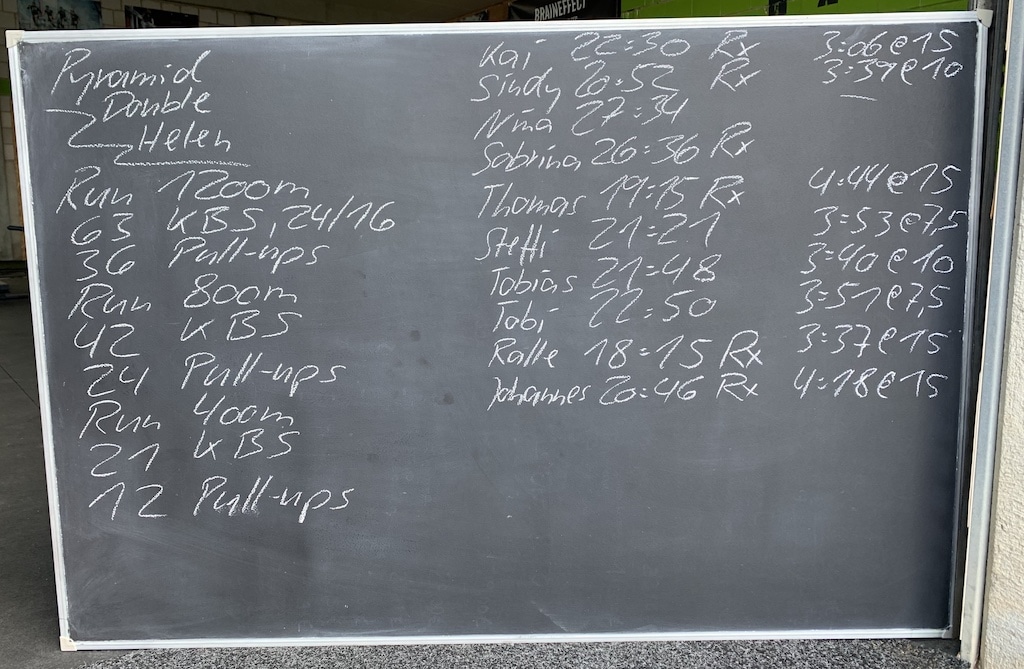 BRAINEFFECT
Pyramid
Double
Helen
Run 1200m
63 KBS, 24/16
36 Pull-ups
Run 800m
42 KBS
24 Pull-ups
Run 400m
21 KBS
12 Pull-ups
Kai 22:30 Rx 3:06@15
Sindy 20:52 Rx 3:39@10
Nina 27:34
Sabrina 26:36 Rx
Thomas 19:15 Rx 4:44@15
Steffi 21:21 3:53@7,5
Tobias 21:48 3:40@10
Tobi 22:50 3:51@7,5
Ralle 18:15 Rx 3:37@15
Johannes 20:46 Rx 4:18@15